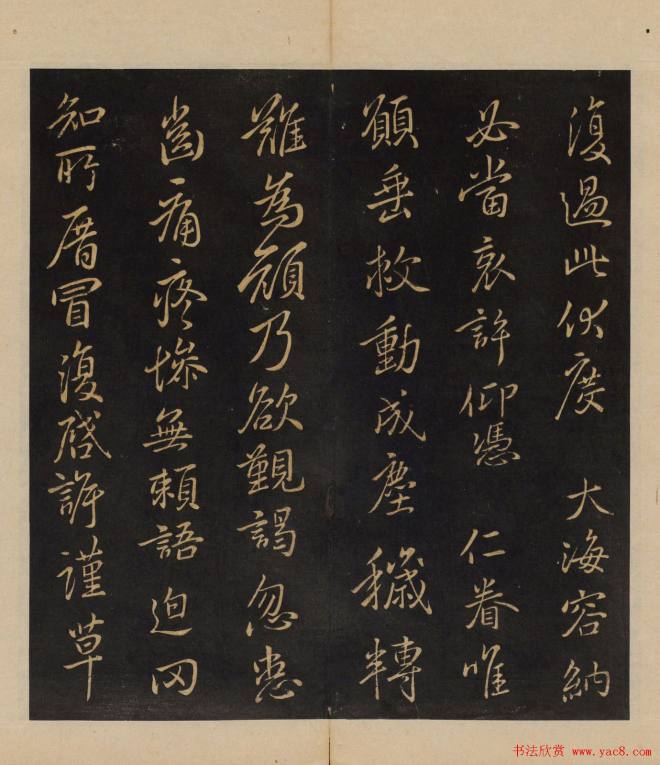 復過此伏度 大海容納
必當哀許仰憑 仁眷唯
願垂救動成塵穢轉
難為顏乃欲覲謁忽患
齒痛疼慘無賴語迫罔
知所厝冒復啓訴謹草
书法欣赏 www.yac8.com